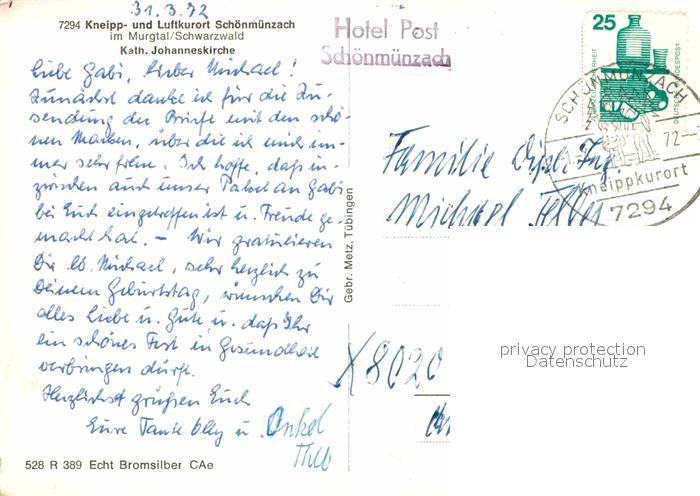 31.3.72
7294 Kneipp- und Luftkurort Schönmünzach
im Murgtal/Schwarzwald
Kath. Johanneskirche
Liebe Gabi, lieber Michael!
Zunächst danke ich für die Zu-
sendung der Briefe mit den schö-
nen Marken, über die ich mich im-
mer sehr freue. Ich hoffe, daß in-
zwischen auch unser Paket an Gabi
bei Euch eingetroffen ist u. Freude ge-
macht hat. – Wir gratulieren
Dir lb. Michael, sehr herzlich zu
Deinem Geburtstag, wünschen Dir
alles Liebe u. Gute u. daß Ihr
ein schönes Fest in Gesundheit
verbringen dürft.
Herzlichst grüßen Euch
Eure Tante u. Onkel
Theo
528 R 389 Echt Bromsilber CAe
Gebr. Metz, Tübingen
Hotel Post
Schönmünzach
25
DEUTSCHE BUNDESPOST
SCHÖNMÜNZACH
72
Kneippkurort
7294
Familie Dipl. Ing.
Michael
X8020
privacy protection
Datenschutz